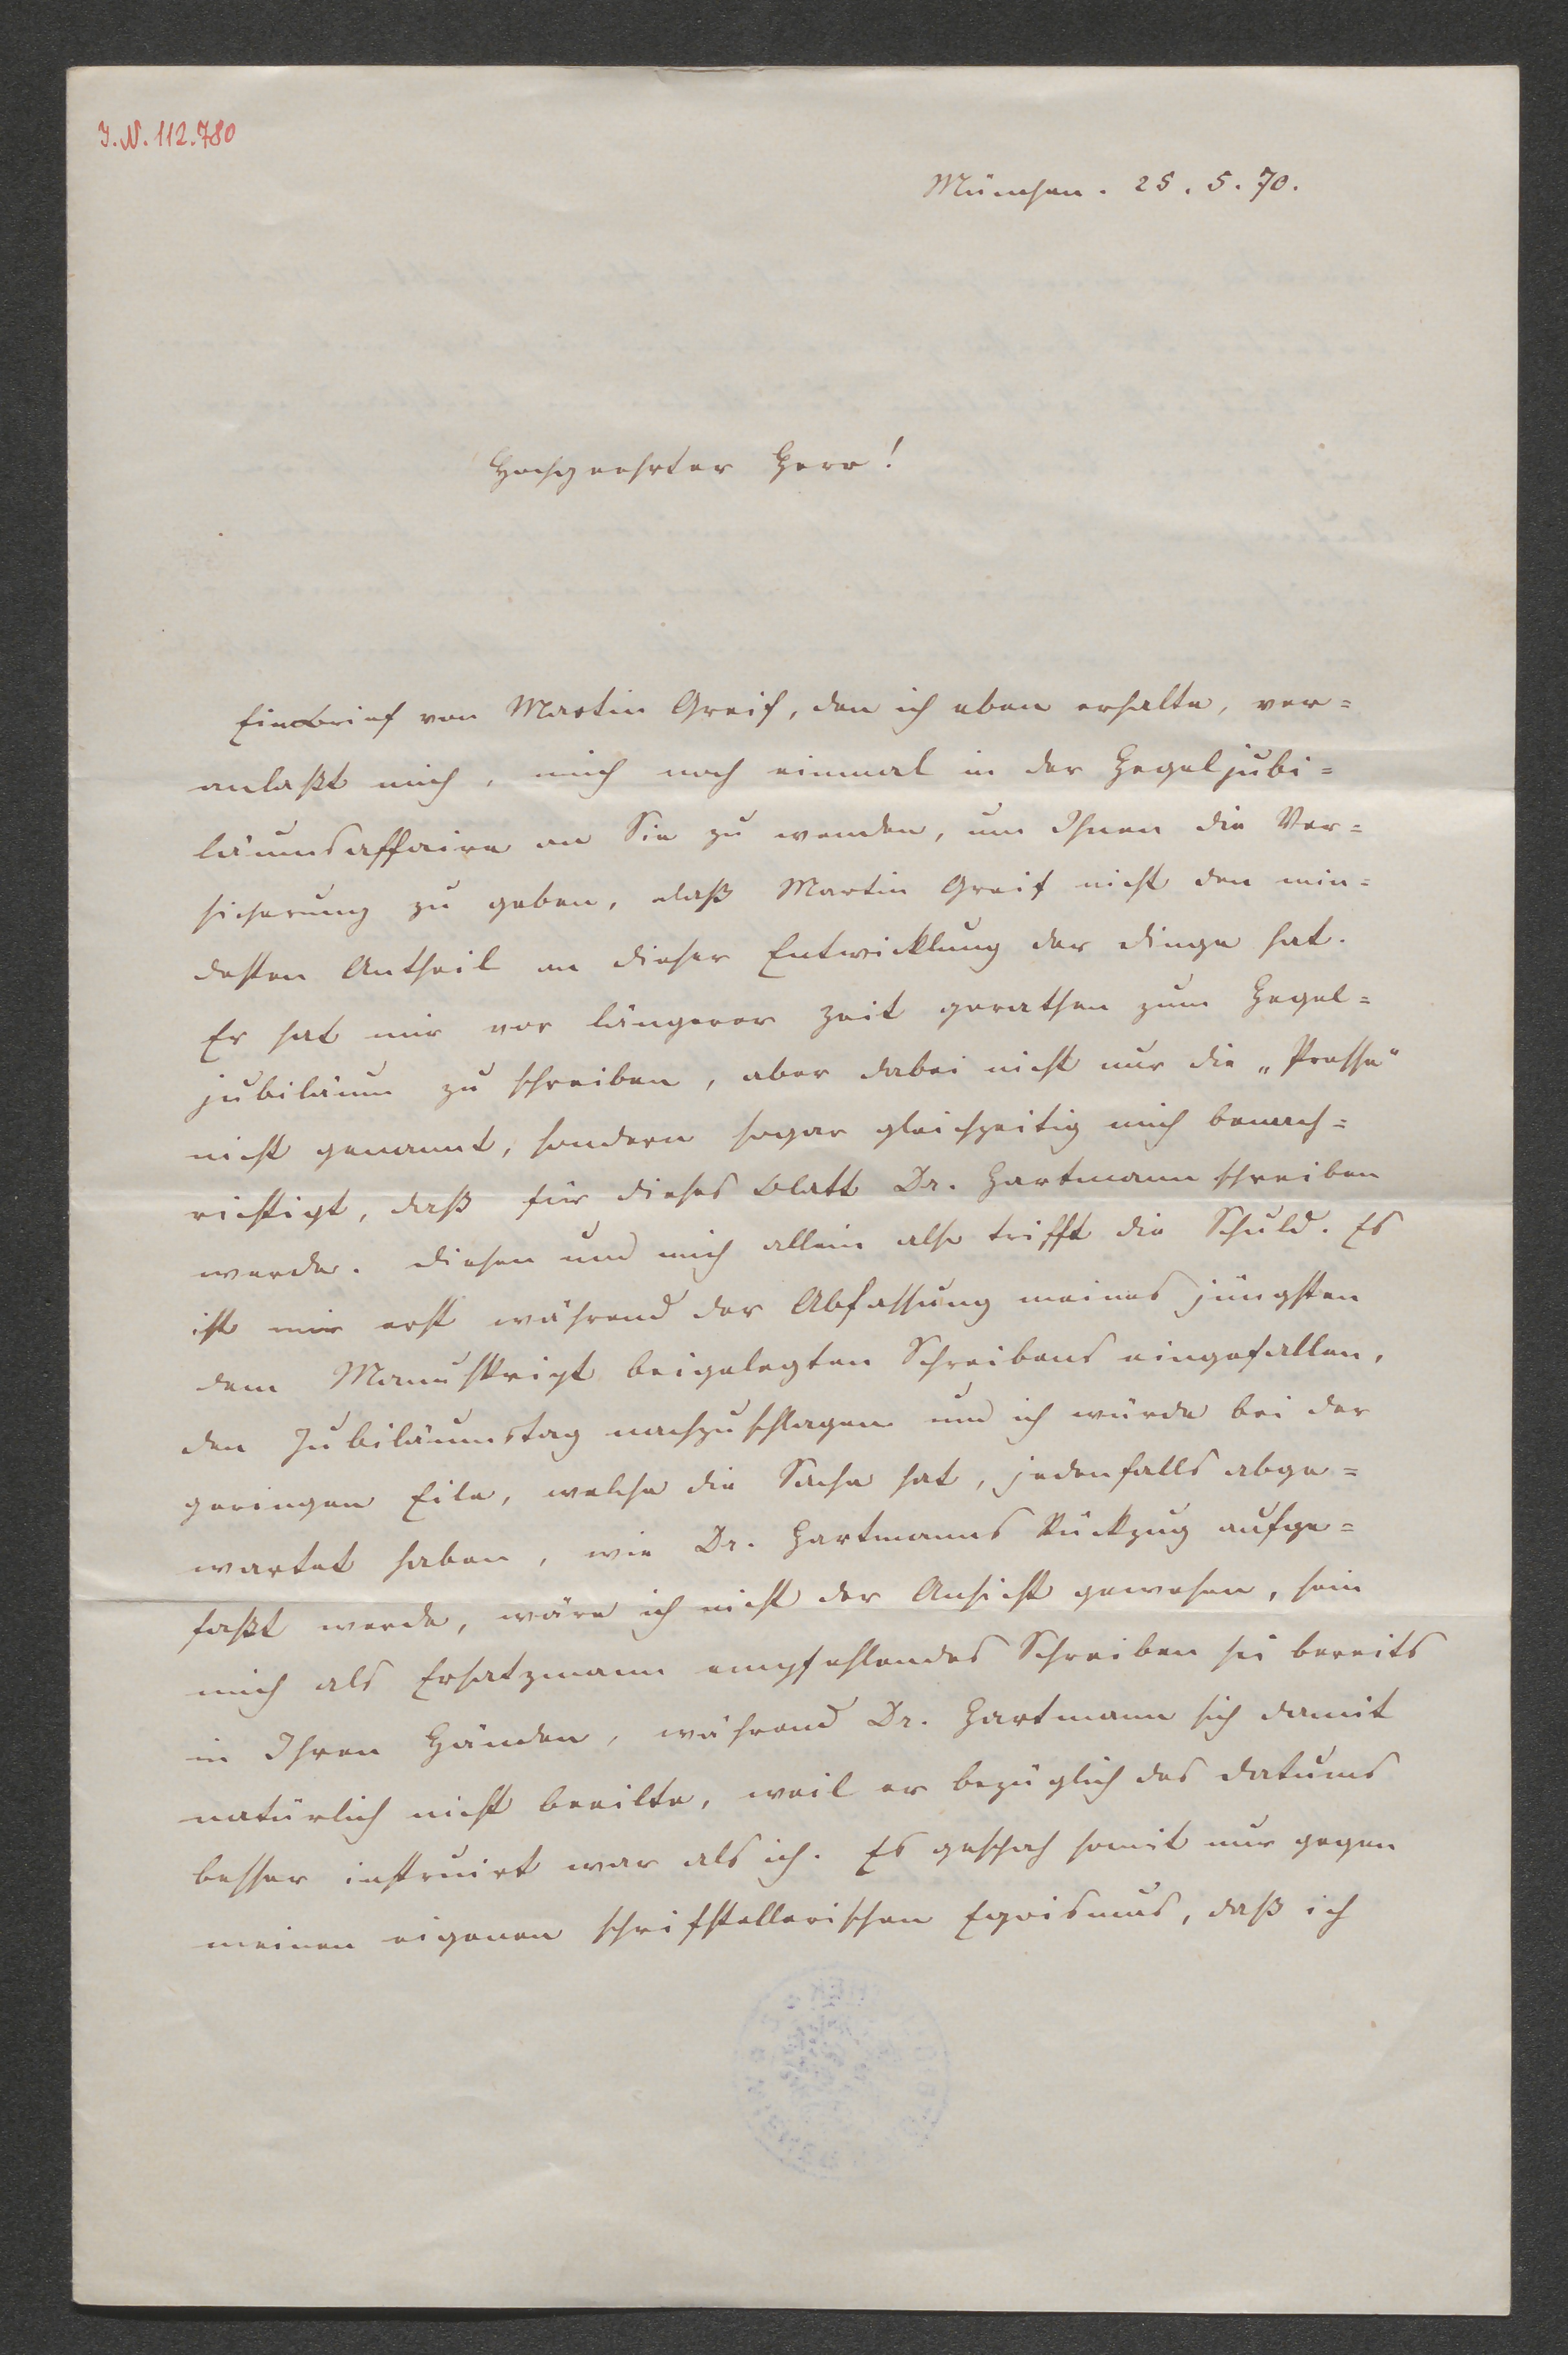 I. N. 112.780
München. 25. 5. 70.
Hochgeehrter Herr!
Ein Brief von Martin Greif, den ich eben erhalte, ver=
anlaßt mich, mich noch einmal in der Hegeljubi=
läumsaffaire an Sie zu wenden, um Ihnen die Ver=
sicherung zu geben, daß Martin Greif nicht den min=
desten Antheil an dieser Entwicklung der Dinge hat.
Er hat mir vor längerer Zeit gerathen zum Hegel=
jubiläum zu schreiben, aber dabei nicht nur die „Presse"
nicht genannt, sondern sogar gleichzeitig mich benach=
richtigt, daß für dieses Blatt Dr. Hartmann schreiben
werde. Diesen und mich allein also trifft die Schuld. Es
ist mir erst während der Abfassung meines jüngsten
dem Manuskript beigelegten Schreibens eingefallen,
den Jubiläumstag nachzuschlagen und ich würde bei der
geringen Eile, welche die Sache hat, jedenfalls abge=
wartet haben, wie Dr. Hartmanns Rückzug aufge=
faßt werde, wäre ich nicht der Ansicht gewesen, sein
mich als Ersatzmann empfehlendes Schreiben sei bereits
in Ihren Händen, während Dr. Hartmann sich damit
natürlich nicht beeilte, weil er bezüglich des Datums
besser instruirt war als ich. Es geschah somit nur gegen
meinen eigenen schrifstellerischen Egoismus, daß ich